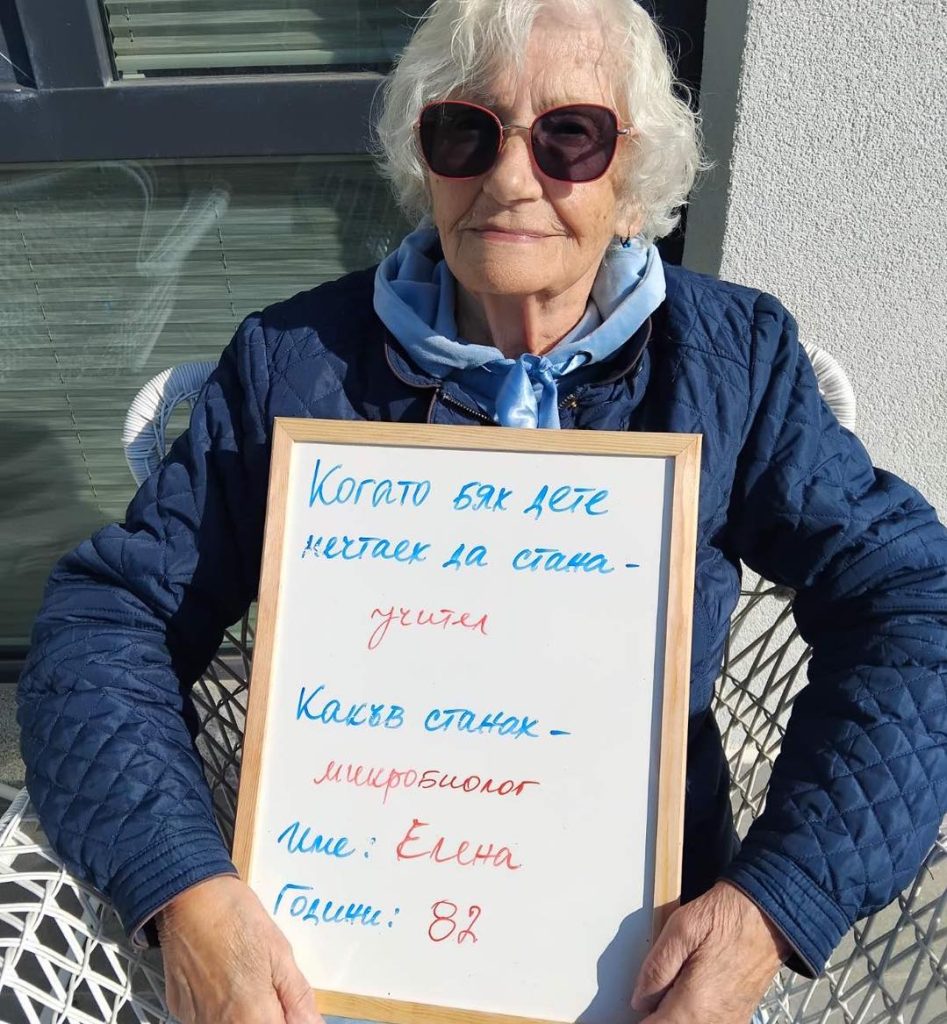 Когато бях дете
мечтаех да стана -
учител
Какъв станах -
микробиолог
Име: Елена
Години: 82